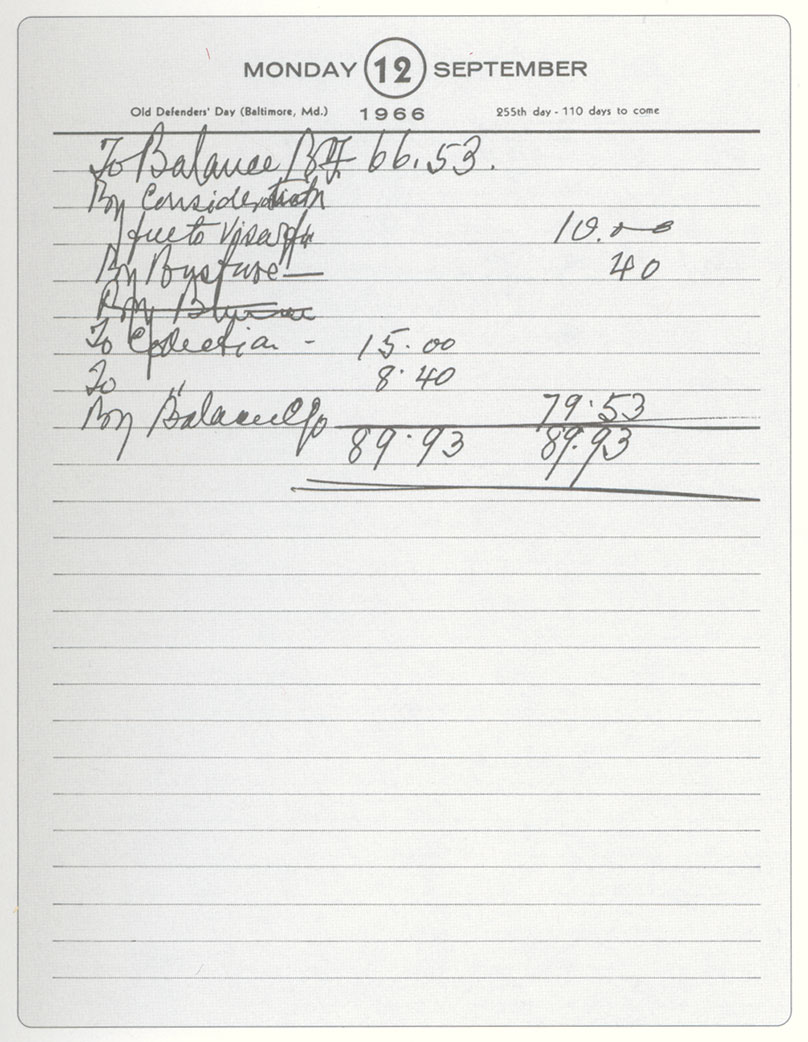 MONDAY 12 SEPTEMBER
Old Defenders' Day (Baltimore, Md.) 1966 255th day - 110 days to come
To Balance B/F 66.53.
By Consideration
fee to Visa 10.00
By Busfare — 40
By
To Collection - 15.00
To " 8.40
By Balance C/o 79.53
89.93 89.93